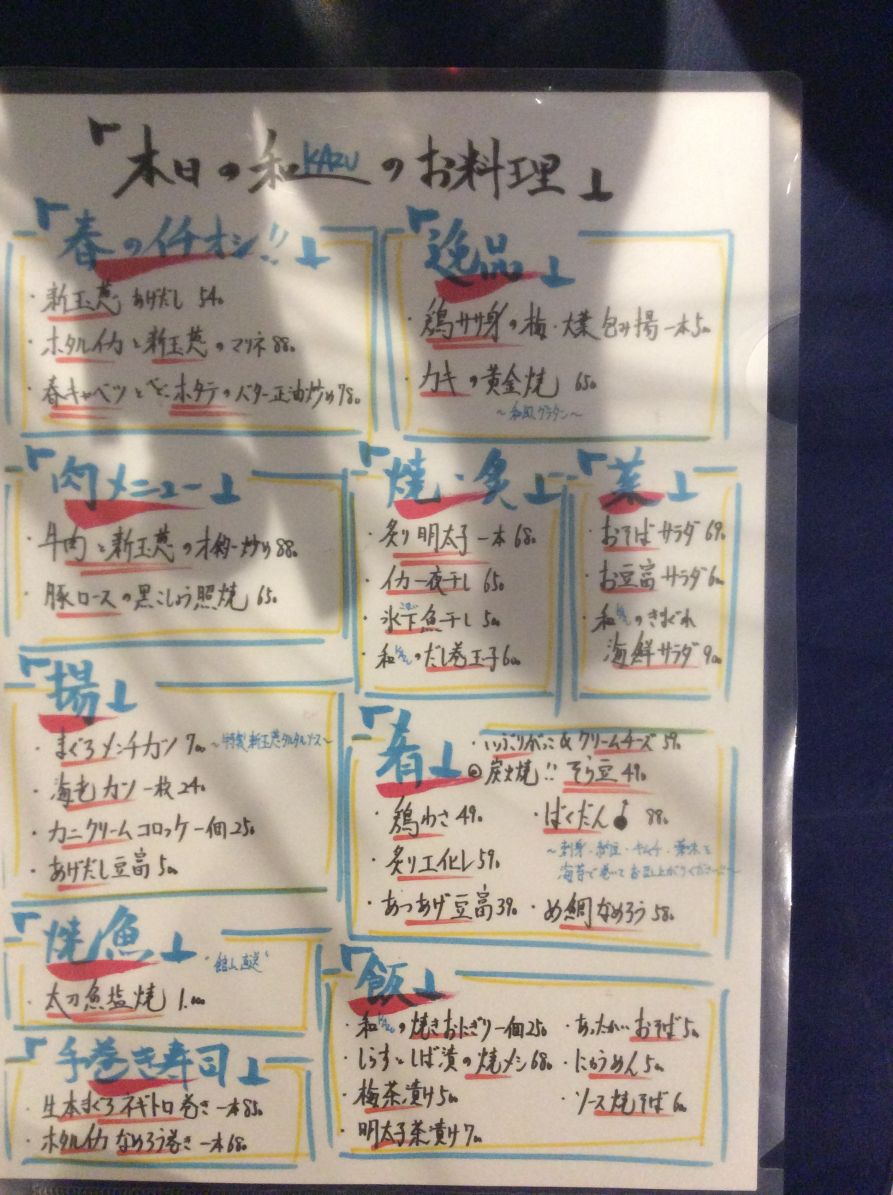 「本日の和KAZUのお料理」
「春のイチオシ!!」
・新玉葱 あげだし 540
・ホタルイカと新玉葱のマリネ 880
・春キャベツとベビーホタテのバター正油炒め 780
「逸品」
・鶏ササ身の梅・大葉包み揚 一本 500
・カキの黄金焼 650
～和風グラタン～
「肉メニュー」
・牛肉と新玉葱の炒め 880
・豚ロースの黒こしょう照焼 650
「焼・炙」
・炙り明太子 一本 680
・イカ一夜干し 650
・氷下魚干し 500
・和のだし巻玉子 600
「菜」
・おそばサラダ 690
・お豆富サラダ 600
・和のきまぐれ
海鮮サラダ 900
「揚」
・まぐろメンチカツ 700 ～特製 新玉葱タルタルソース～
・海老カツ 一枚 240
・カニクリームコロッケ 一個 250
・あげだし豆富 500
「肴」
・いぶりがっこ&クリームチーズ 590
◎炭火焼!! そら豆 490
・鶏わさ 490
・ばくだん 880
・炙りエイヒレ 590
～刺身・納豆・キムチ・薬味を
海苔で巻いてお召し上がりください～
・あつあげ豆富 390
・め鯛なめろう 580
「焼魚」
"館山直送"
・太刀魚塩焼 1.000
「手巻き寿司」
・生本まぐろネギトロ巻き 一本 850
・ホタルイカなめろう巻き 一本 680
「飯」
・和の焼きおにぎり 一個 250
・あったかいおそば 500
・しらすとしば漬の焼メシ 680
・にゅうめん 500
・梅茶漬け 500
・ソース焼そば 600
・明太子茶漬け 700